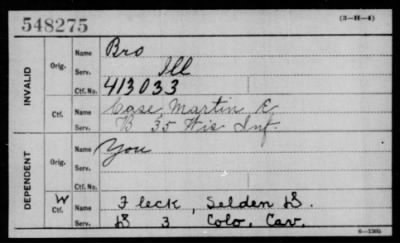 548275
(3-H-4)
INVALID
Orig.
Name Bro
Serv. Ill
Ctf. No. 413033
Ctf.
Name Case, Martin E
Serv. B 35 Wis Inf.
DEPENDENT
Orig.
Name You
Serv.
Ctf. No.
W
Ctf.
Name Fleck, Selden B.
Serv. B 3 Colo. Cav.